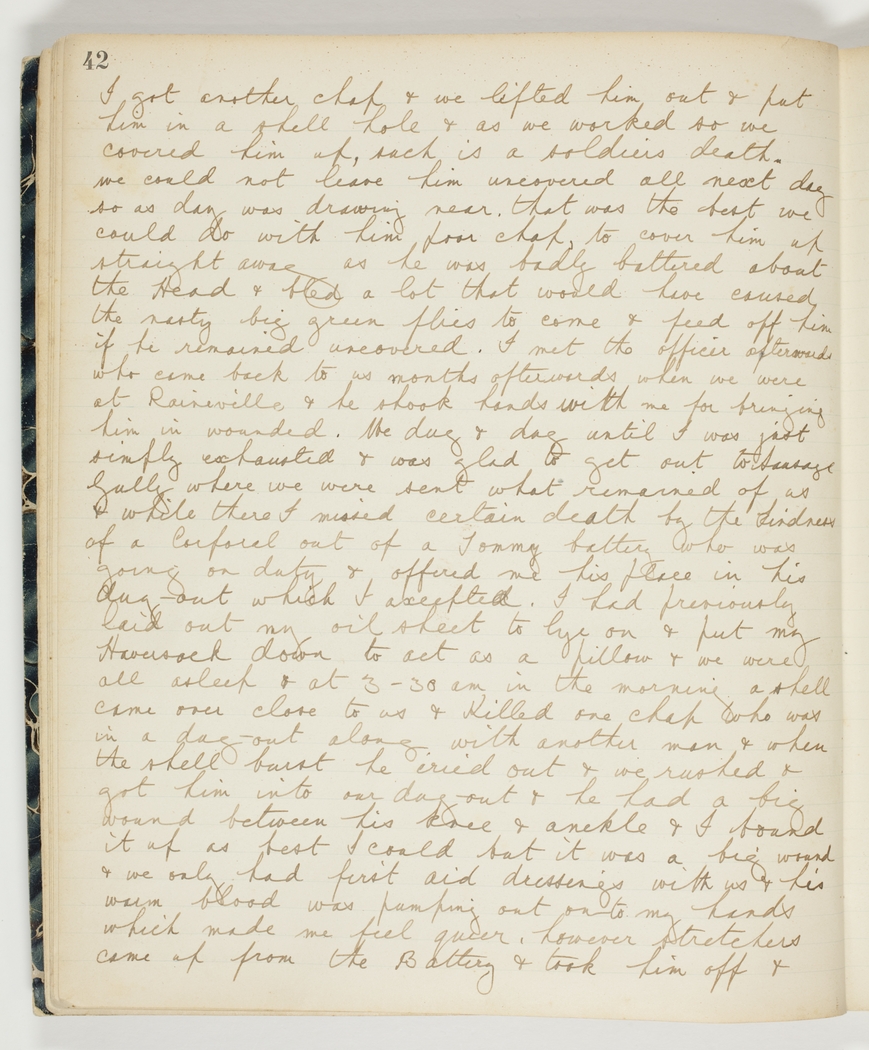 42
I got another chap & we lifted him out & put
him in a shell hole & as we worked so we
covered him up, such is a soldiers death.
we could not leave him uncovered all next day
so as day was drawing near. that was the best we
could do with him poor chap, to cover him up
straight away as he was badly battered about
the Head & bled a lot that would have caused
the nasty big green flies to come & feed off him
if he remained uncovered. I met the officer afterwards
who came back to us months afterwards when we were
at Raineville & he shook hands with me for bringing
him in wounded. We dug & dug until I was just
simply exhausted & was glad to get out to Sausage
Gully where we were sent what remained of us
& while there I missed certain death by the Kindness
of a Corporal out of a Tommy battery who was
going on duty & offered me his place in his
dug-out which I axcepted. I had previously
laid out my oil sheet to lye on & put my
Haversack down to act as a pillow & we were
all asleep & at 3-30 am in the morning a shell
came over close to us & Killed one chap who was
in a dug-out along with another man & when
the shell burst he cried out & we rushed &
got him into our dug-out & he had a big
wound between his knee & ankle & I bound
it up as best I could but it was a big wound
& we only had first aid dressenigs with us & his
warm blood was pumping out on-to my hands
which made me feel queer. however stretchers
came up from the Battery & took him off &